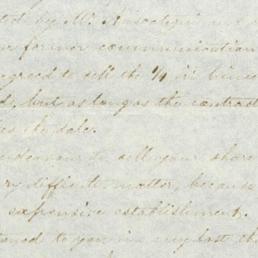 ted by Mr.
our former communication
agreed to sell the
ds, but as long as the contract
es the sale.
endeavour to sell your share
ry difficult matter, because
expensive establishment.
tioned to you in my last th